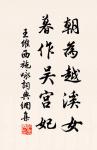 朝為越溪女
暮作吳宮妃
王維西施詠詞典網集